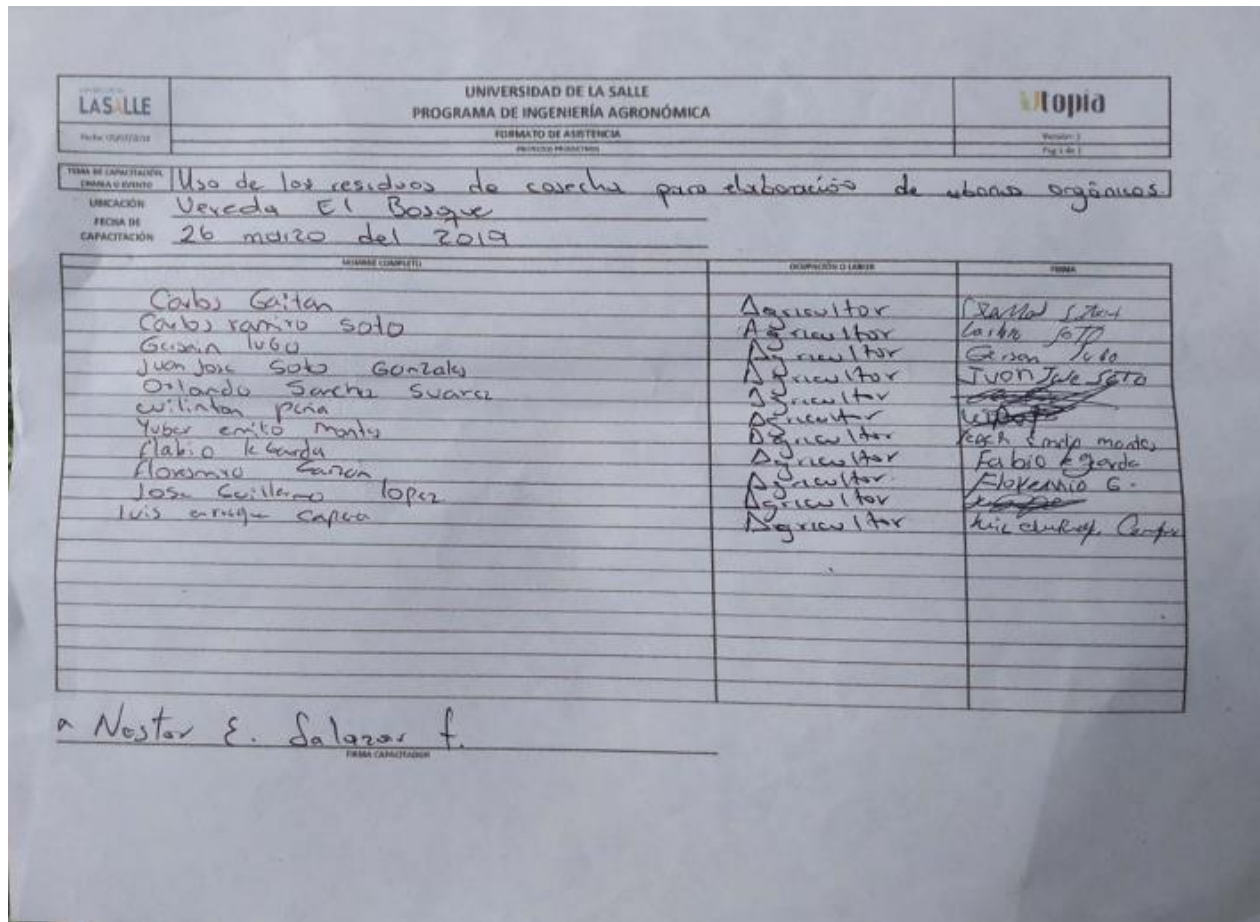 LASALLE
UNIVERSIDAD DE LA SALLE
PROGRAMA DE INGENIERÍA AGRONÓMICA
Utopía
FORMATO DE ASISTENCIA
PROYECTOS PRODUCTIVOS
Pag 1 de 1
TEMA DE CAPACITACIÓN, CHARLA O EVENTO Uso de los residuos de cosecha para elaboración de abonos orgánicos.
UBICACIÓN Vereda El Bosque
FECHA DE CAPACITACIÓN 26 marzo del 2019
NOMBRE COMPLETO OCUPACIÓN O LABOR FIRMA
Carlos Gaitan Agricultor
Carlos ramiro Soto Agricultor SOTO
lugo Agricultor Gerson lugo
Juan Jose Soto Gonzales Agricultor Juon Jose SOTO
Orlando Sanchez Suarez Agricultor
wilinton peña Agricultor
Yuber emilo Montes Agricultor montes
flabio k Garda Agricultor Fabio k garda
Agricultor Florennio G.
Jose Guillermo lopez Agricultor
luis enrique Agricultor
Nestor E. Salazar f.
FIRMA CAPACITADOR